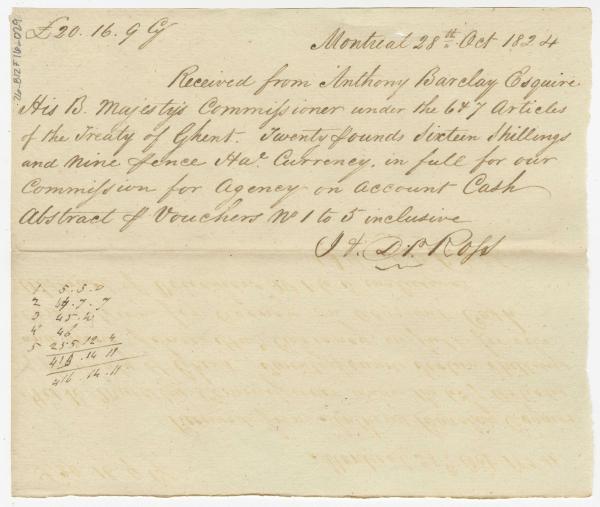 £20.16.9 Cy
Montreal 28th Oct 1824
Received from Anthony Barclay Esquire
His B. Majesty's Commissioner under the 6 & 7 Articles
of the Treaty of Ghent. Twenty Pounds Sixteen Shillings
and Nine Pence Hax. Currency, in full for our
Commission for Agency on account Cash
Abstract of Vouchers No 1 to 5 inclusive
J & Dd. Ross
1 5.5.0
2 7.7
3 45.4
4 46
5 255.12.4
14.11
416.14.11